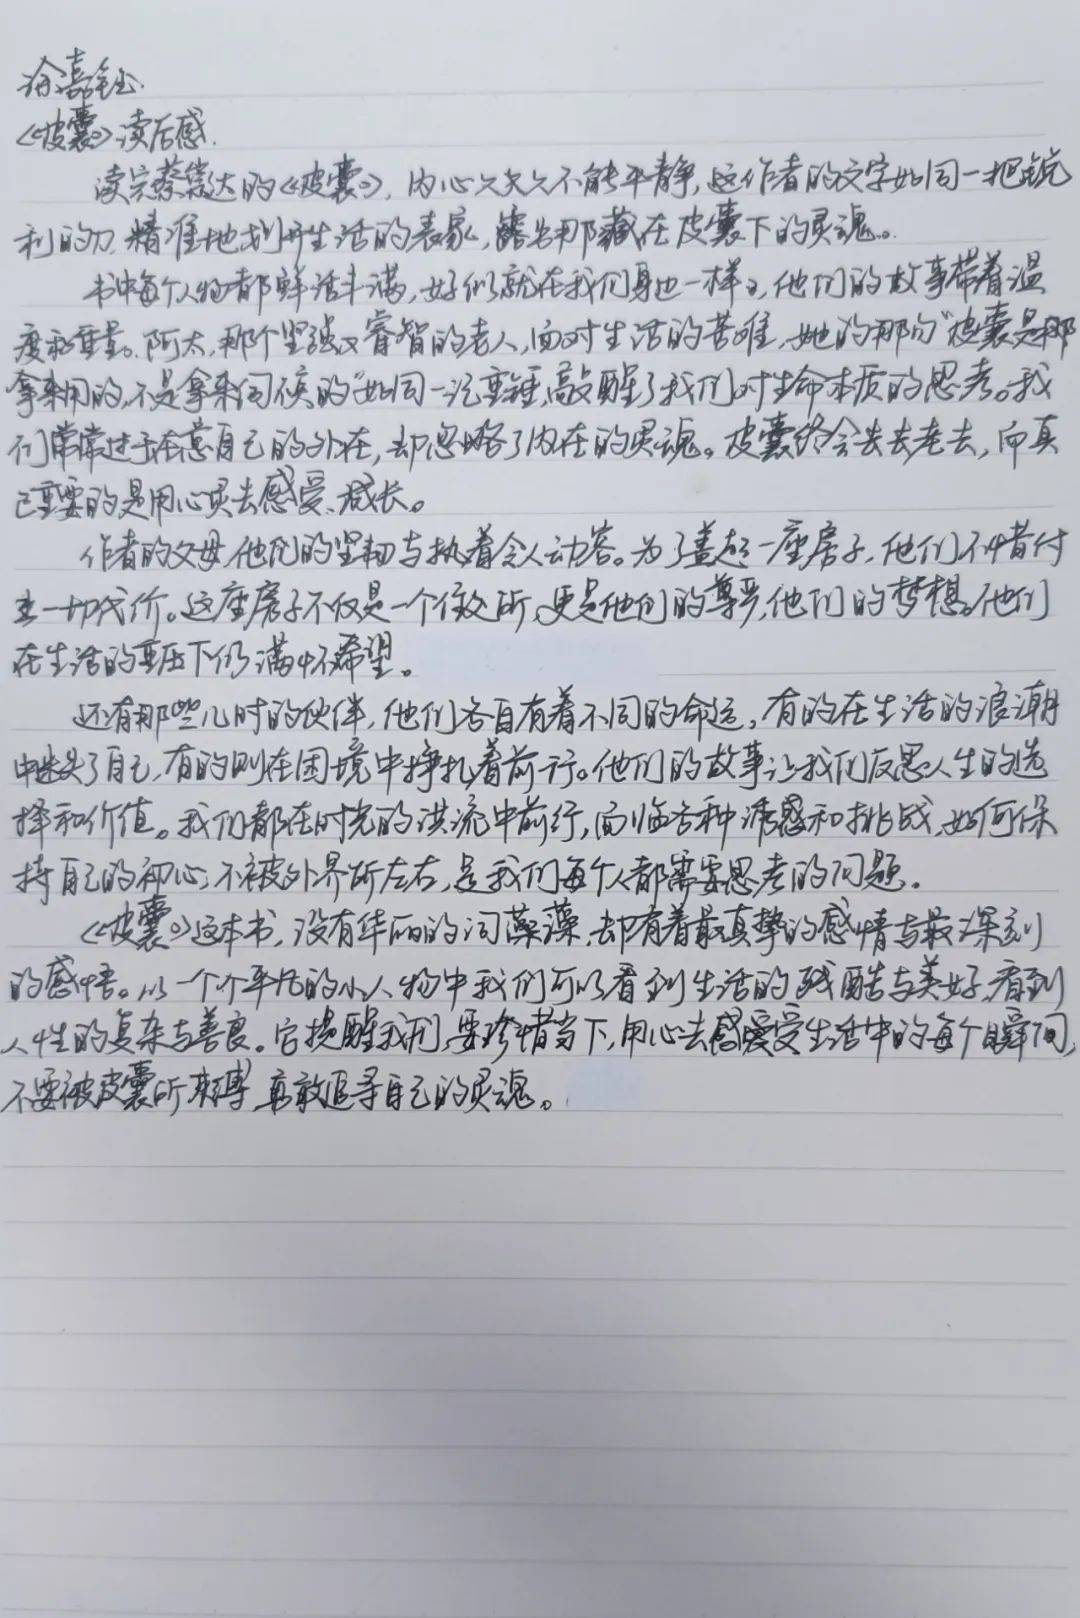 涂嘉钰
《皮囊》读后感.
读完蔡崇达的《皮囊》,内心久久不能平静,这作者的文字如同一把锐
利的刀,精准地划开生活的表象,露出那藏在皮囊下的灵魂。
书中每个人物都鲜活丰满,好似就在我们身边一样,他们的故事带着温
度和重量。阿太,那个坚强又睿智的老人,面对生活的苦难,她的那句"皮囊是
拿来用的,不是拿来伺候的"如同一记重锤,敲醒了我们对生命本质的思考。我
们常常过于在意自己的外在,却忽略了内在的灵魂。皮囊终会去老去,而真
重要的是用心灵去感受、成长。
作者的父母,他们的坚韧与执着令人动容。为了盖起一座房子,他们不惜付
出一切代价。这座房子不仅是一个住处所,更是他们的尊严,他们的梦想。他们
在生活的重压下仍满怀希望。
还有那些儿时的伙伴,他们各自有着不同的命运,有的在生活的浪潮
中迷失了自己,有的则在困境中挣扎着前行。他们的故事让我们反思人生的选
择和价值。我们都在时光的洪流中前行,面临各种诱惑和挑战,如何保
持自己的初心,不被外界所左右,是我们每个人都需要思考的问题。
《皮囊》这本书,没有华丽的词藻,却有着最真挚的感情与最深刻
的感悟。从一个个平凡的小人物中我们可以看到生活的残酷与美好,看到
人性的复杂与善良。它提醒我们,要珍惜当下,用心去感受生活中的每个瞬间,
不要被皮囊所束缚,勇敢追寻自己的灵魂。